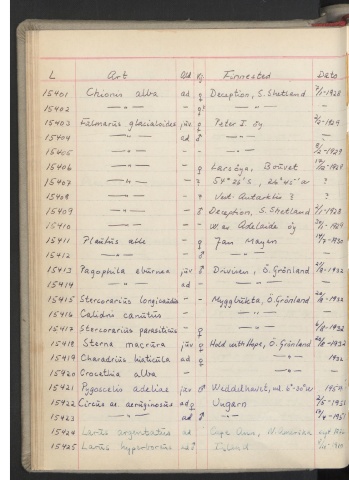 L Art Ald Kj Finnested Dato
15401 Chionis alba ad ♀ Deception, S. Shetland 7/1-1928
15402 —"— - —"— -
15403 Fulmarus glacialoides juv ♀ Peter I. öy 2/2-1929
15404 —"— ad ♂ —"—
15405 —"— - - —"— -1929
15406 —"— - ♀ Larsöya, Bouvet -1929
15407 —"— - ? 54° 26' S, 26° 45' W ?
15408 —"— - ? Vest Antarktis ? ?
15409 —"— - ♂ Deception, S. Shetland -1928
15410 —"— - - W. av Adelaide öy -1929
15411 Plautus alle - ♀ Jan Mayen -1930
15412 —"— - ♂ —"—
15413 Pagophila eburnea juv ♂ , Ö. Grönland -1932
15414 —"— ad - —"—
15415 Stercorarius longicaudus - - Myggbukta, Ö. Grönland -1932
15416 Calidris canutus - - —"—
15417 Stercorarius parasiticus - ♀ —"— -1932
15418 Sterna macrura juv ♀ Hold with Hope, Ö. Grönland -1932
15419 Charadrius hiaticula ad ♀ —"— 1932
15420 Crocethia alba - - —"—
15421 Pygoscelis adeliae juv ♂ Weddelhavet,
15422 Circus ae. aeruginosus ad ♀ Ungarn -1951
15423 —"— ad ♂ —"— -1951
15424 Larus argentatus ad Cape , N. Amerika
15425 Larus hyperboreus ad